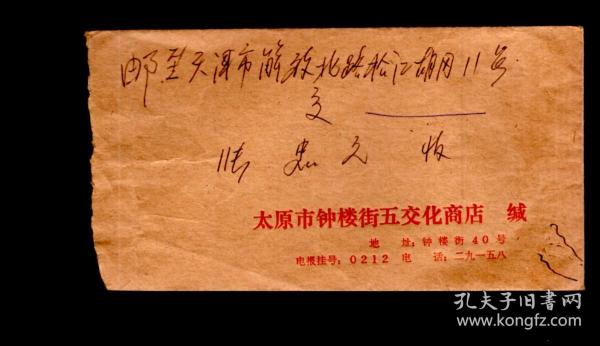 邮至天津市解放北路松江胡同11号
交
张忠元 收
太原市钟楼街五交化商店 缄
地 址:钟楼街40号
电报挂号:0212 电 话:二九一五八
孔夫子旧书网
www.kongfz.com